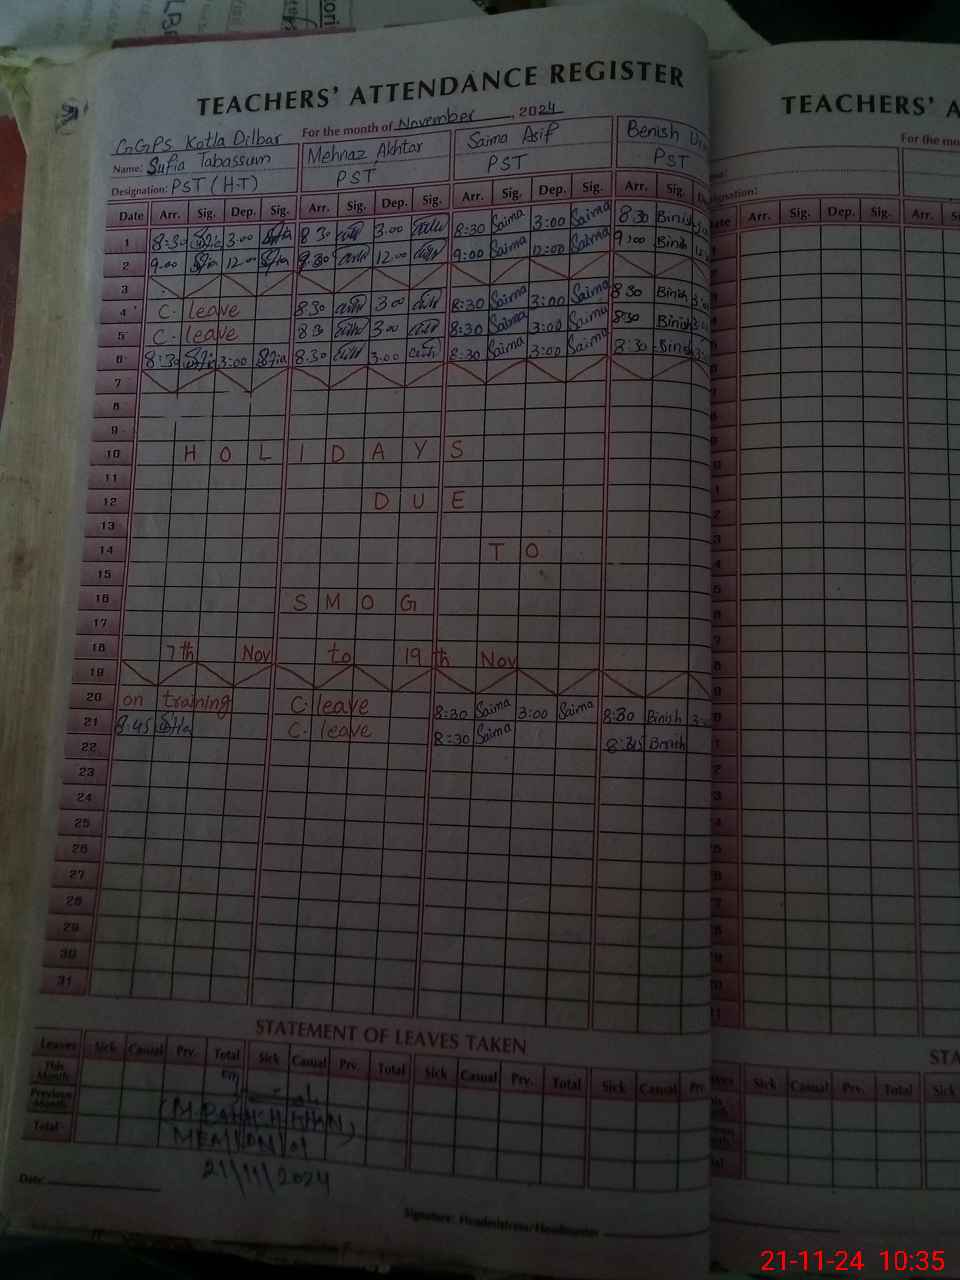 TEACHERS' ATTENDANCE REGISTER
GGPS Kotla Dilbar For the month of November, 2024
Name: Sufia Tabassum Mehnaz Akhtar Saima Asif Benish
Designation: PST (H-T) PST PST PST
Date Arr. Sig. Dep. Sig. Arr. Sig. Dep. Sig. Arr. Sig. Dep. Sig. Arr. Sig.
1 8:30 Sufia 3:00 Sufia 8 30 3.00 8:30 Saima 3:00 Saima 8 30 Binish
2 9.00 Sufia 12.00 Sufia 9.30 12.00 9:00 Saima 12:00 Saima 9:00 Binish
3
4 C. leave 8.30 3 00 8:30 Saima 3:00 Saima 8 30 Binish
5 C. leave 8 30 3 00 8:30 Saima 3:00 Saima 8:30 Binish
6 8:30 Sufia 3:00 Sufia 8.30 3.00 8:30 Saima 3:00 Saima 8:30 Binish
7
8
9
10 HOLIDAYS
11
12 DUE
13
14 TO
15
16 SMOG
17
18 7th Nov to 19th Nov
19
20 on training C. leave 8:30 Saima 3:00 Saima 8:30 Binish
21 8:45 Sufia C. leave 8:30 Saima 8:45 Binish
22
23
24
25
26
27
28
29
30
31
STATEMENT OF LEAVES TAKEN
Leaves Sick Casual Prv. Total Sick Casual Prv. Total Sick Casual Prv. Total Sick Casual Prv.
This Month
Previous Month
Total
KHAN)
21/11/2024
Date:
Signature: Headmistress/Headmaster
TEACHERS' A
For the mon
Arr. Sig. Dep. Sig. Arr.
STA
Sick Casual Prv. Total Sick
21-11-24 10:35